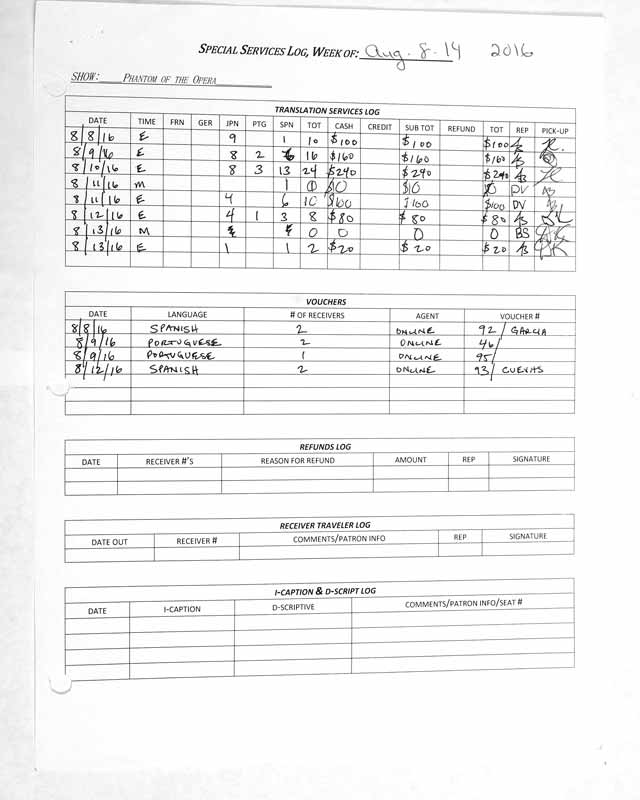 SPECIAL SERVICES LOG, WEEK OF: Aug. 8-14 2016
SHOW: PHANTOM OF THE OPERA
TRANSLATION SERVICES LOG
DATE TIME FRN GER JPN PTG SPN TOT CASH CREDIT SUB TOT REFUND TOT REP PICK-UP
8/8/16 E 9 1 10 $100 $100 $100
8/9/16 E 8 2 16 $160 $160 $160
8/10/16 E 8 3 13 24 $240 $240 $240
8/11/16 M 1 $10 DV
8/11/16 E 4 6 10 $100 $100 $100 DV
8/12/16 E 4 1 3 8 $80 $80 $80
8/13/16 M 0 0 0 0 BS
8/13/16 E 1 1 2 $20 $20 $20
VOUCHERS
DATE LANGUAGE # OF RECEIVERS AGENT VOUCHER #
8/8/16 SPANISH 2 ONLINE 92/ GARCIA
8/9/16 PORTUGUESE 2 ONLINE 46/
8/9/16 PORTUGUESE 1 ONLINE 95/
8/12/16 SPANISH 2 ONLINE 93/ CUEVAS
REFUNDS LOG
DATE RECEIVER #'S REASON FOR REFUND AMOUNT REP SIGNATURE
RECEIVER TRAVELER LOG
DATE OUT RECEIVER # COMMENTS/PATRON INFO REP SIGNATURE
I-CAPTION & D-SCRIPT LOG
DATE I-CAPTION D-SCRIPTIVE COMMENTS/PATRON INFO/SEAT #